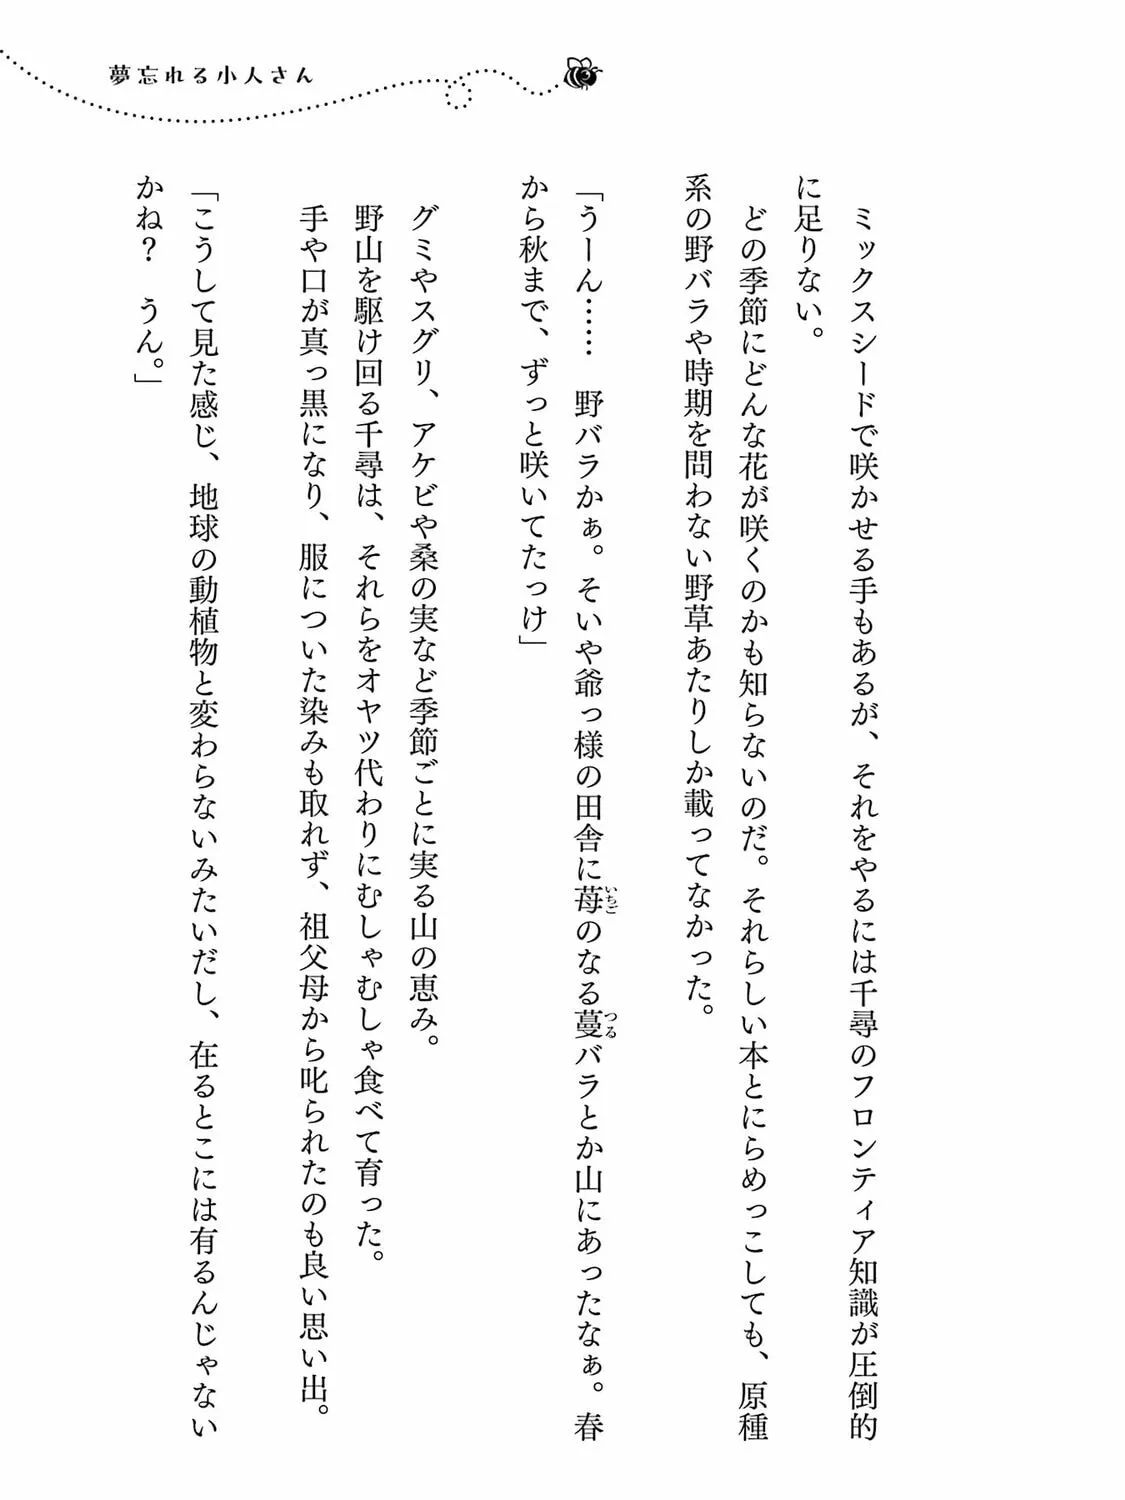 夢忘れる小人さん
　ミックスシードで咲かせる手もあるが、それをやるには千尋のフロンティア知識が圧倒的
に足りない。
　どの季節にどんな花が咲くのかも知らないのだ。それらしい本とにらめっこしても、原種
系の野バラや時期を問わない野草あたりしか載ってなかった。
「うーん……　野バラかぁ。そいや爺っ様の田舎に苺のなる蔓バラとか山にあったなぁ。春
いちご
つる
から秋まで、ずっと咲いてたっけ」
　グミやスグリ、アケビや桑の実など季節ごとに実る山の恵み。
　野山を駆け回る千尋は、それらをオヤツ代わりにむしゃむしゃ食べて育った。
　手や口が真っ黒になり、服についた染みも取れず、祖父母から叱られたのも良い思い出。
「こうして見た感じ、地球の動植物と変わらないみたいだし、在るとこには有るんじゃない
かね？　うん。」